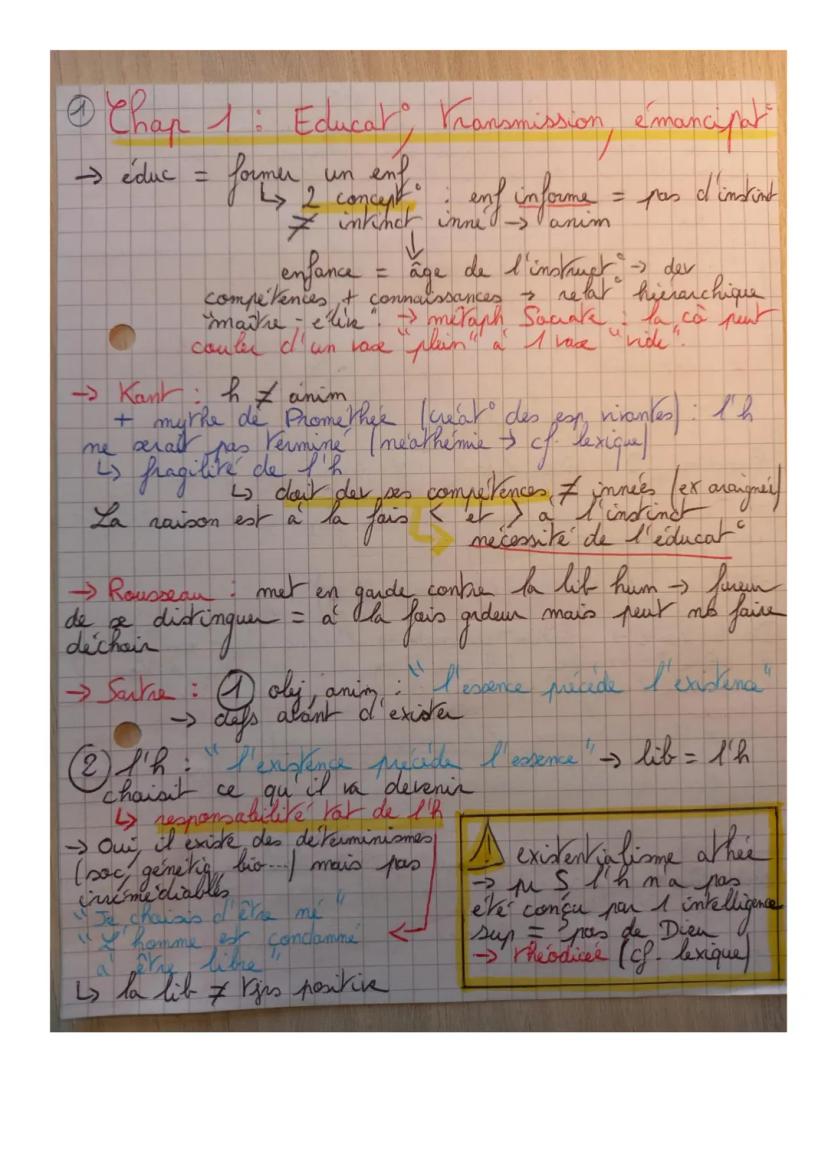 ① Chap 1 : Educat°, transmission, émancipat°
→ éduc = former un enf
↳ 2 concept° : enf informe = pas d'instinct
≠ intinct inné → anim
↓
enfance = âge de l'instruct° → dev
compétences + connaissances → relat° hiérarchique
"maître - élève". → métaph Socrate : la cô peut
couler d'un vase "plein" à 1 vase "vide".
→ Kant : h ≠ anim
+ mythe de Prométhée (créat° des esp vivantes) : l'h
ne serait pas terminé (néothémie → cf. lexique)
↳ fragilité de l'h
↳ doit dev ses compétences ≠ innées (ex araignée)
La raison est à la fois < et > à l'instinct
↳ nécessité de l'éducat°
→ Rousseau : met en garde contre la lib hum → fureur
de se distinguer = à la fois grdeur mais peut ns faire
déchoir
→ Sartre : ① obj, anim : "l'essence précède l'existence"
→ défs avant d'exister
② l'h : "l'existence précède l'essence" → lib = l'h
choisit ce qu'il va devenir
↳ responsabilité tot de l'h
→ Oui, il existe des déterminismes
(soc, génétiq, bio...) mais pas
irrémédiables
"Je choisis d'être né"
"L'homme est condamné
à être libre"
↳ la lib ≠ tjrs positive
⚠ existentialisme athée
→ pr S l'h n'a pas
été conçu par 1 intelligence
sup = pas de Dieu
→ théodicée (cf. lexique)